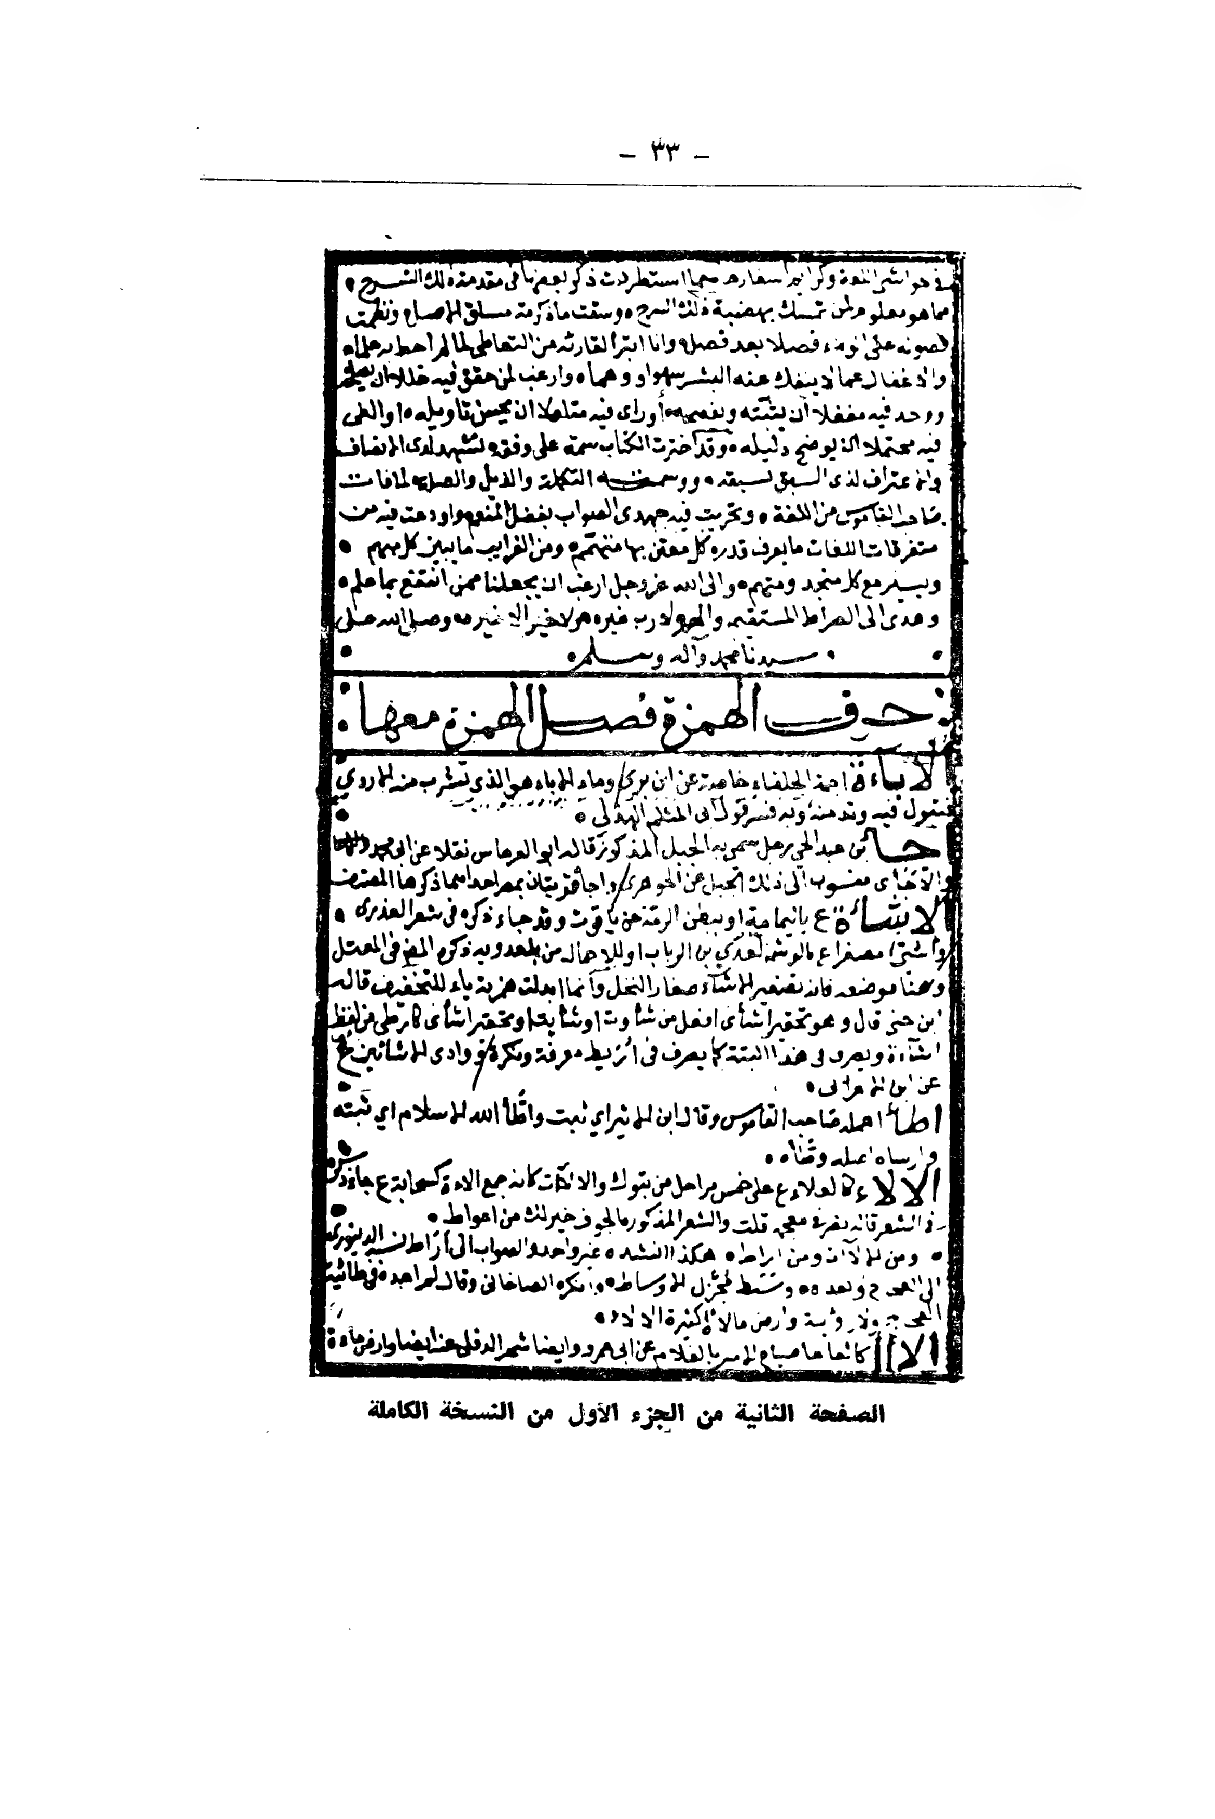 - ٣٣ -
في حواشي اللغة وكراريس اسفاره مما استطردت ذكر بعضها في مقدمة ذلك الشرح
مما هو معلوم لمن تمسك بهضبة ذلك الشرح وسقت ما ذكرته مساق الاصل ونظمت
فصوله على فصلا بعد فصل وانا ابرأ لقارئه من التعاطي لما لم احط به علما
والاغفال عما لا ينفك عنه البشر سهوا ووهما وارغب لمن حقق فيه خللا ان يصلح
ووجد فيه مغفلا ان يثبته أو راى فيه متاهلا ان يحسن تاويله او الفى
فيه محتملا ان يوضح دليله وقد اخترت الكتاب سمة على وفقه لتشهد لدى الانصاف
والاعتراف لذي السبق بسبقه ووسمته التكملة والذيل والصلة لما فات
صاحب القاموس من اللغة وتحريت فيه جهدي الصواب بفضل المنعم واودعت فيه من
متفرقات اللغات ما يعرف قدره كل معتن بها متهم ومن الغرايب ما يبين كل مبهم
ويسير مع كل منجد ومتهم والى الله عز وجل ارغب ان يجعلنا ممن انتفع بما علم
وهدى الى الصراط المستقيم لا رب غيره ولا خير الا خيره وصلى الله على
سيدنا محمد وآله وسلم
حرف الهمزة فصل الهمزة معها
الأباءة اجمة الحلفاء خاصة عن ابن بري وماء الاباء هو الذي تشرب منه الاروى
فتبول فيه وتدمنه وبه فسر قول ابي المثلم الهذلي
اجأ بن عبد الحي رجل سمي به الجبل المذكور قاله ابو العرماس نقلا عن ابي محمد
والأجائي منسوب الى ذلك الجبل عن الجوهري واجأ قريتان بمصر احداهما ذكرها المصنف
الاشاءة ع باليمامة او ببطن الرمة عن ياقوت وقد جاء ذكره في شعر العذري
وأشيّ مصغرا ع بالوشم لعدي بن الرباب او للاحمال من بلعدوية ذكره المص في المعتل
وهنا موضعه فانه تصغير الاشاء صغار النخل وانما ابدلت همزته ياء للتخفيف قاله
ابن جني قال وهو تحقير اشأى افعل من شأوت او شأيت او تحقير اشأى كارطى من لفظ
اشاءة ويصرف في هذا البتة كما يصرف في أريط معرفة ونكرة ووادي الاشائين ع
عن ابن الاعرابي
اطأ اهمله صاحب القاموس وقال ابن الاثير اي ثبت واطأ الله الاسلام اي ثبته
وارساه اصله وطأه
الالاء كالعلاء ع على خمس مراحل من تبوك والالآت كانه جمع الاءة كسحابة ع جاء ذكره
في الشعر قاله نصر في معجمه قلت والشعر المذكور الجوف خير لك من اغواط
ومن الالآت ومن اراط هكذا انشده غير واحد والصواب الى أراط لنسبه الدينوري
الى العجاج وبعده وانكره الصاغاني وقال لم اجده في طائية
العجاج ولا رؤبة وارض مألأة كثيرة الالاء
الآأ كالعاعا صياح الامير بالغلام عن ابي عمرو وايضا شجر الدفلى عنه ايضا وارض ماءة
الصفحة الثانية من الجزء الأول من النسخة الكاملة